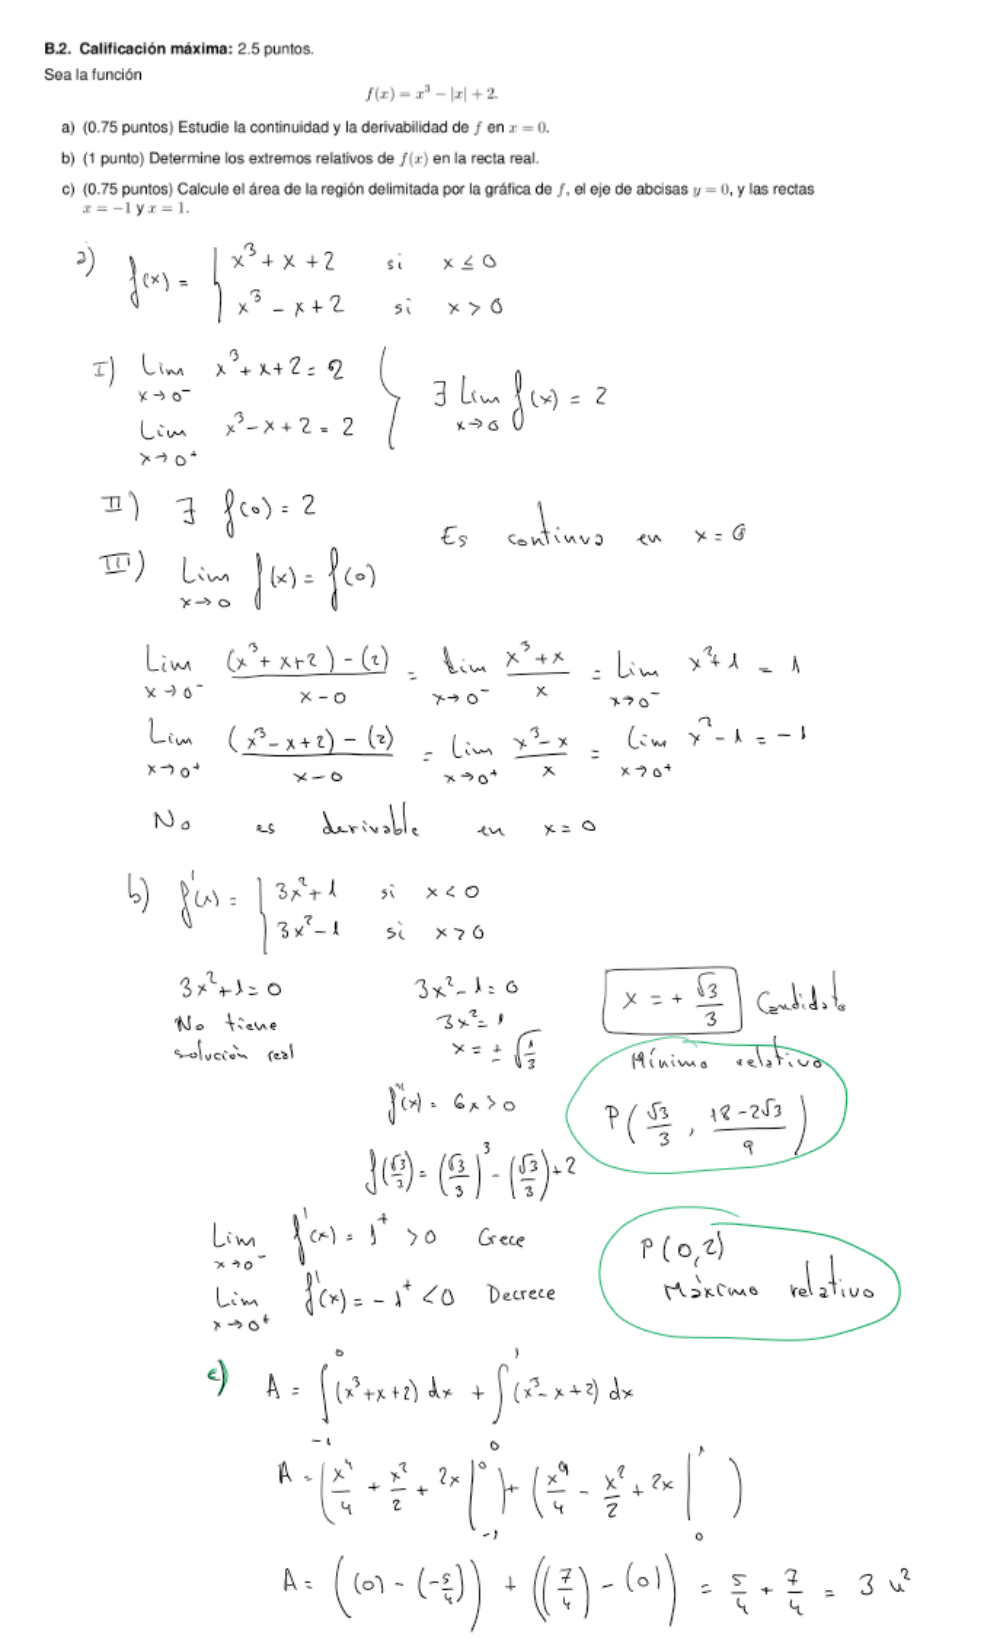 B.2. Calificación máxima: 2.5 puntos.
Sea la función
f(x) = x³ − |x| + 2.
a) (0.75 puntos) Estudie la continuidad y la derivabilidad de f en x = 0.
b) (1 punto) Determine los extremos relativos de f(x) en la recta real.
c) (0.75 puntos) Calcule el área de la región delimitada por la gráfica de f, el eje de abcisas y = 0, y las rectas
x = −1 y x = 1.
a) f(x) = { x³ + x + 2 si x ≤ 0
x³ − x + 2 si x > 0
I) Lim x→0⁻ x³ + x + 2 = 2
Lim x→0⁺ x³ − x + 2 = 2 } ∃ Lim x→0 f(x) = 2
II) ∃ f(0) = 2
Es continua en x = 0
III) Lim x→0 f(x) = f(0)
Lim x→0⁻ (x³ + x + 2) − (2) / x − 0 = Lim x→0⁻ x³ + x / x = Lim x→0⁻ x² + 1 = 1
Lim x→0⁺ (x³ − x + 2) − (2) / x − 0 = Lim x→0⁺ x³ − x / x = Lim x→0⁺ x² − 1 = −1
No es derivable en x = 0
b) f'(x) = { 3x² + 1 si x < 0
3x² − 1 si x > 0
3x² + 1 = 0 3x² − 1 = 0 x = + √3/3 Candidato
No tiene 3x² = 1
solución real x = ± √(1/3) Mínimo relativo
f''(x) = 6x > 0 P(√3/3, 18 − 2√3 / 9)
f(√3/3) = (√3/3)³ − (√3/3) + 2
Lim x→0⁻ f'(x) = 1⁺ > 0 Crece P(0, 2)
Lim x→0⁺ f'(x) = −1⁺ < 0 Decrece Máximo relativo
c) A = ∫₋₁⁰ (x³ + x + 2) dx + ∫₀¹ (x³ − x + 2) dx
A = (x⁴/4 + x²/2 + 2x |₋₁⁰) + (x⁴/4 − x²/2 + 2x |₀¹)
A = ((0) − (−5/4)) + ((7/4) − (0)) = 5/4 + 7/4 = 3 u²